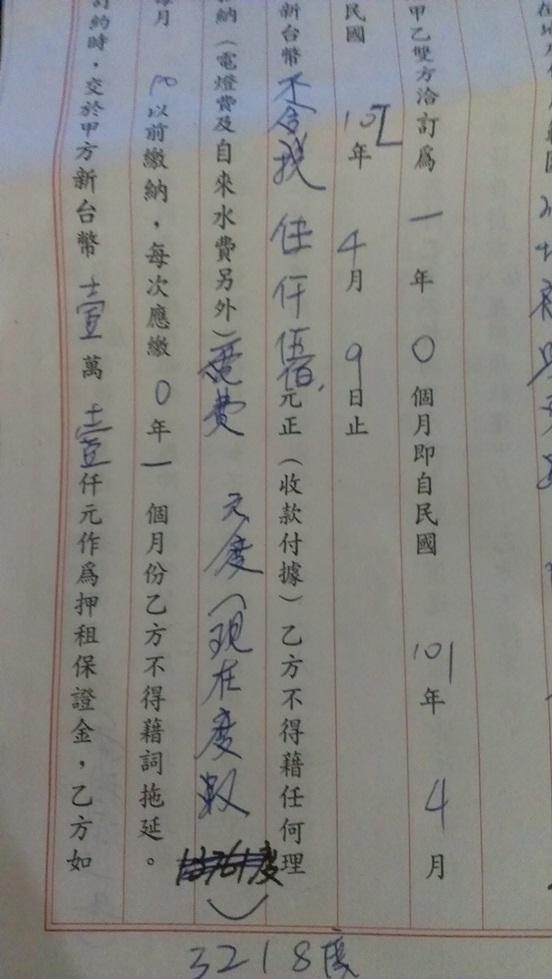 甲乙雙方洽訂為一年0個月即自民國101年4月
民國102年4月9日止
新台幣 伍仟伍佰元正（收款付據）乙方不得藉任何理
納（電燈費及自來水費另外）電費 元/度（現在度數）3218度
每月10以前繳納，每次應繳0年一個月份乙方不得藉詞拖延。
訂約時，交於甲方新台幣壹萬壹仟元作為押租保證金，乙方如